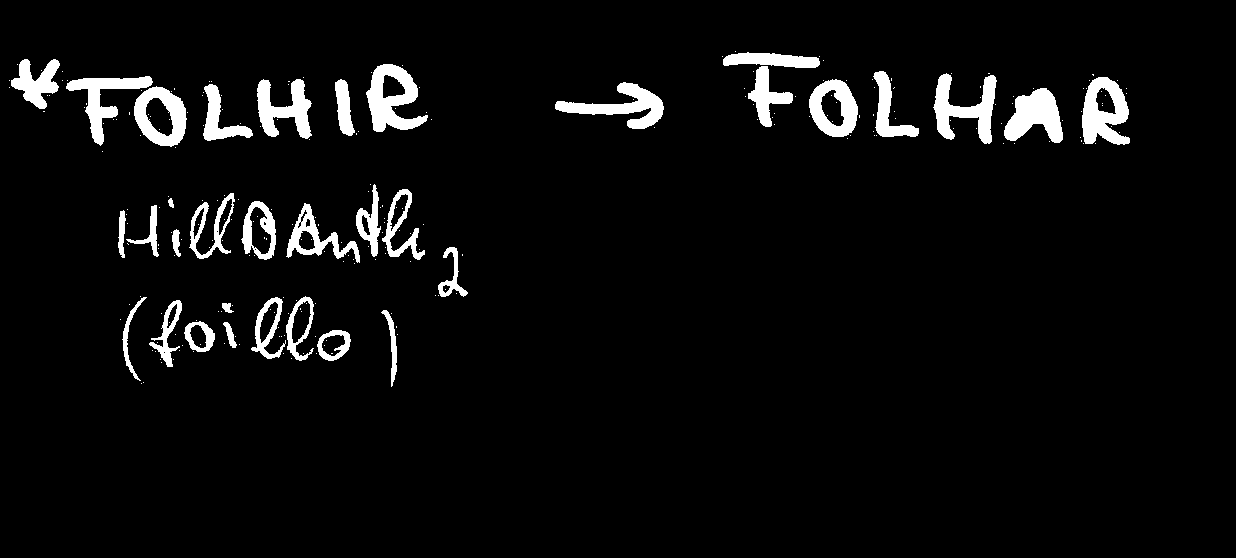 *FOLHIR → FOLHAR
HillBAnth2
(foillo)